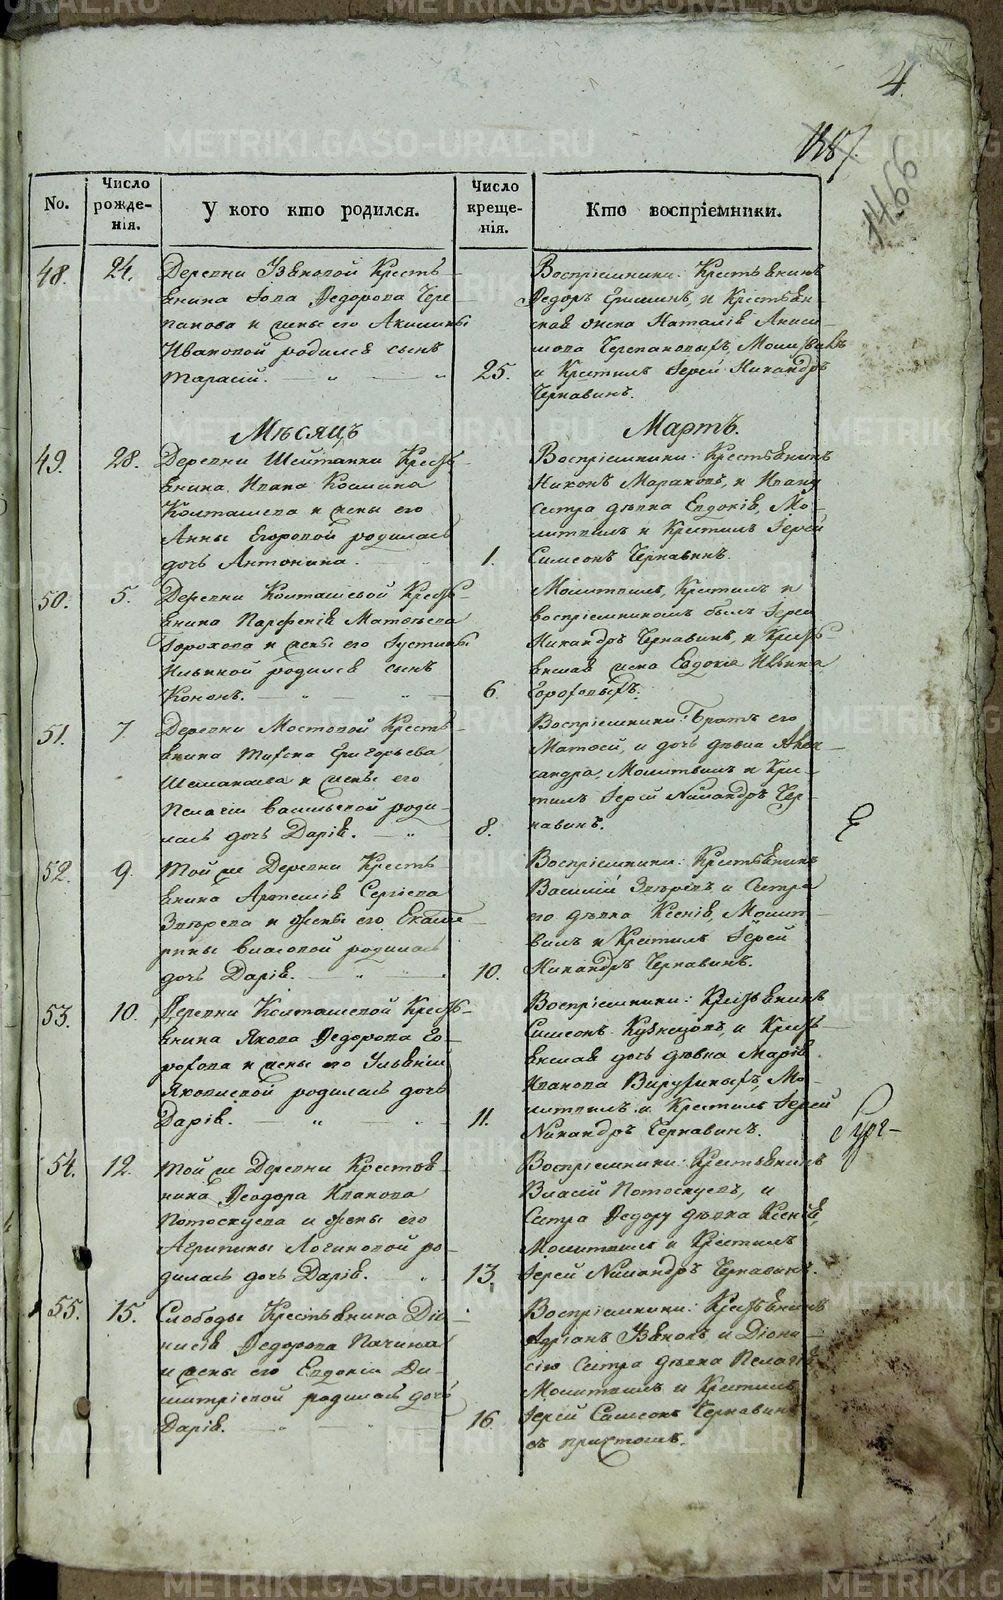 4.
1466
No.
Число рожде-нія.
У кого кто родился.
Число креще-нія.
Кто воспріемники.
48.
24.
Деревни Узяновой Кресть-
янина Іова Ѳедорова Чере
панова и жены его Акилины
Ивановой родился сынъ
Тарасій.
25.
Воспріемники: Крестьянинъ
Ѳедоръ Гришинъ, и Крестьян-
ская жена Наталія Аниси-
мова Черепановыхъ, Молитвилъ
и Крестилъ Іерей Никандръ
Чернавинъ.
Мѣсяцъ
Мартъ.
49.
28.
Деревни Шейтанки Кресть-
янина Ивана Космина
Колташева и жены его
Анны Егоровой родилась
дочь Антонина.
1.
Воспріемники: Крестьянинъ
Никонъ Мараковъ, и Ивана
сестра дѣвка Евдокія, Мо-
литвилъ и Крестилъ Іерей
Симеонъ Чернавинъ.
50.
5.
Деревни Колташевой Кресть-
янина Парфенія Матѳеева
Горохова и жены его Іустины
Ильиной родился сынъ
Кононъ.
6.
Молитвилъ, Крестилъ и
воспріемникомъ былъ Іерей
Никандръ Чернавинъ, и Кресть-
янская жена Евдокія
Гороховыхъ.
51.
7.
Деревни Мостовой Кресть-
янина Тихона Григорьева
Шеманаева и жены его
Пелагіи Васильевой роди-
лась дочь Дарія.
8.
Воспріемники: Братъ его
Матѳей, и дочь дѣвка Алек-
сандра, Молитвилъ и Кре-
стилъ Іерей Никандръ Чер-
навинъ.
52.
9.
Той же Деревни Кресть
янина Артемія Сергіева
Звѣрева и жены его Екате
рины Власовой родилась
дочь Дарія.
10.
Воспріемники: Крестьянинъ
Василій Звѣревъ и Сестра
его дѣвка Ксенія, Молит-
вилъ и Крестилъ Іерей
Никандръ Чернавинъ.
53.
10.
Деревни Колташевой Кресть-
янина Якова Ѳедорова Го-
рохова и жены его Ульяніи
Яковлевой родилась дочь
Дарія.
11.
Воспріемники: Крестьянинъ
Симеонъ Кузнецовъ, и Кресть-
янская дочь дѣвка Марія
Иванова Вирухиныхъ, Мо-
литвилъ и Крестилъ Іерей
Никандръ Чернавинъ.
54.
12.
Той же Деревни Крестья-
нина Ѳеодора Иванова
Потоскуева и жены его
Агрипины Логиновой ро-
дилась дочь Дарія.
13.
Воспріемники: Крестьянинъ
Власій Потоскуевъ, и
Сестра Ѳедору дѣвка Ксенія,
Молитвилъ и Крестилъ
Іерей Никандръ Чернавинъ.
55.
15.
Слободы Крестьянина Діо
нисія Ѳедорова Пачина
и жены его Евдокіи Ди-
митріевой родилась дочь
Дарія.
16.
Воспріемники: Крестьянинъ
Адріанъ и Діони-
сію Сестра дѣвка Пелагія
Молитвилъ и Крестилъ
Іерей Симеонъ Чернавинъ
съ причтомъ.
METRIKI.GASO-URAL.RU